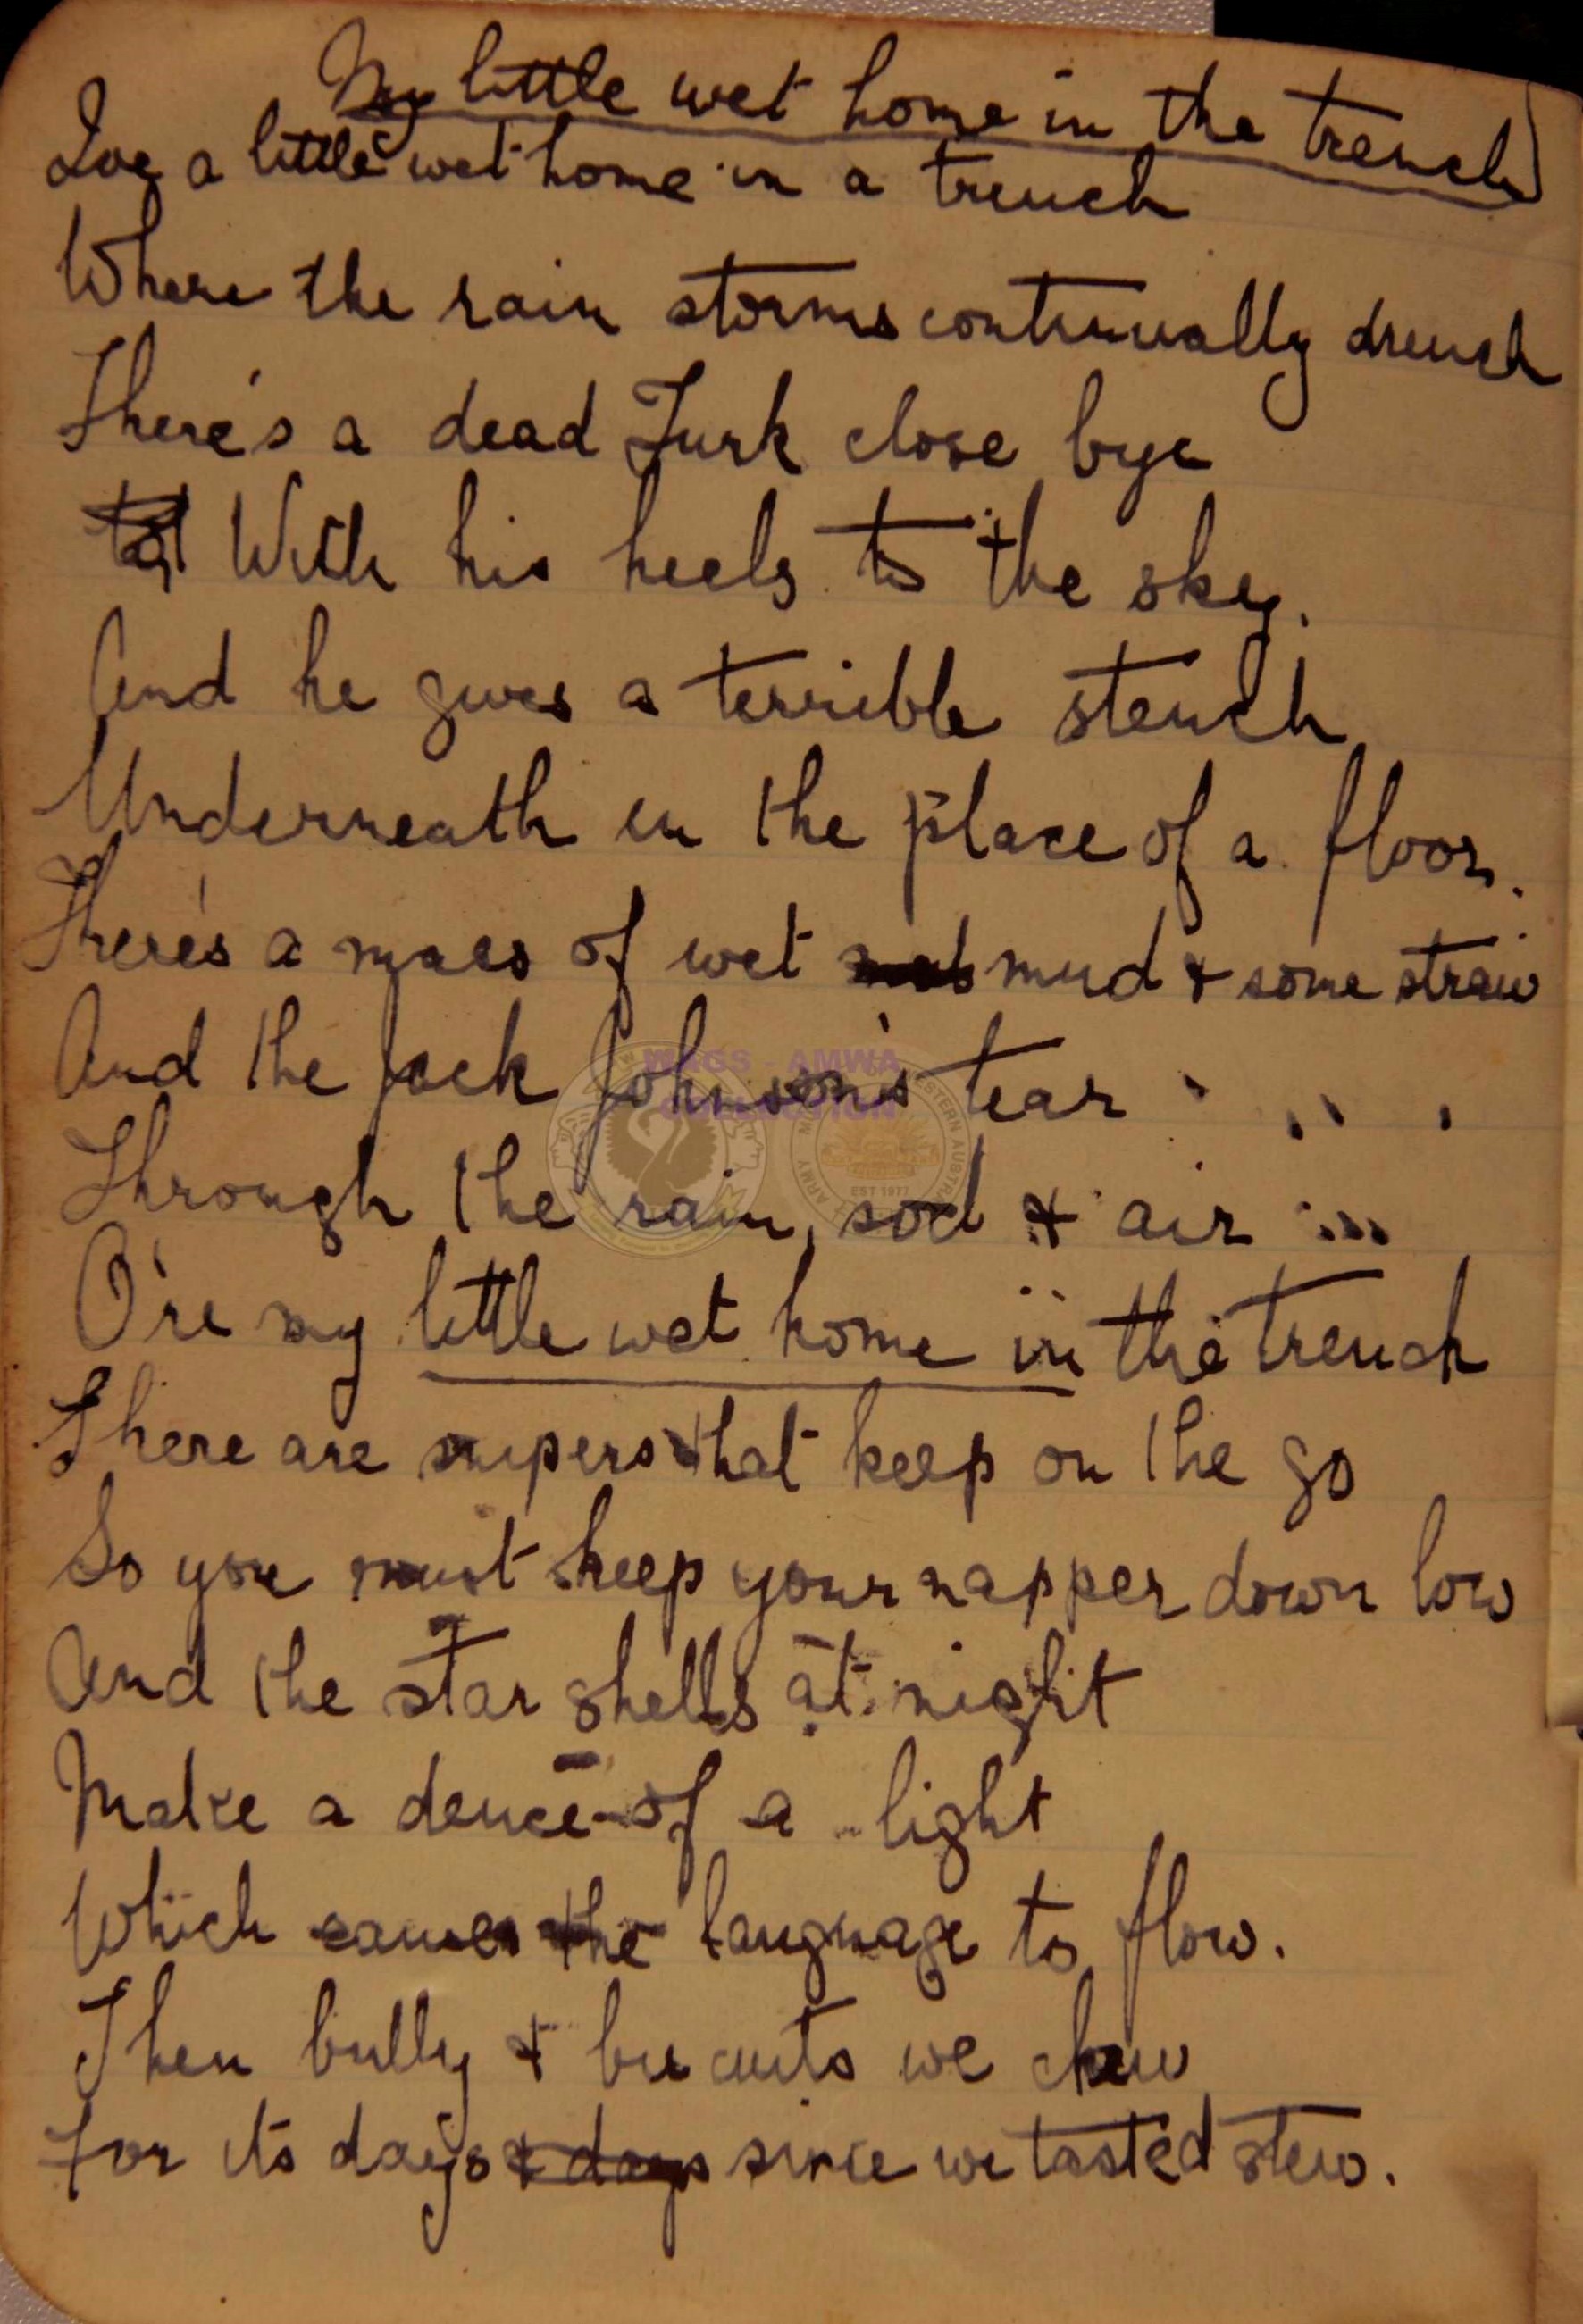 My little wet home in the trench
Ive a little wet home in a trench
Where the rain storms continually drench
There's a dead Turk close bye
With his heels to the sky.
And he gives a terrible stench
Underneath in the place of a floor.
There's a mass of wet mud & some straw
And the Jack Johnson's tear
Through the rain, sod & air
O're my little wet home in the trench
There are snipers that keep on the go
So you must keep your napper down low
And the star shells at night
Make a deuce of a light
Which causes the language to flow.
Then bully & biscuits we chew
For its days & days since we tasted stew.
WAGS - AMWA
COLLECTION
EST 1977